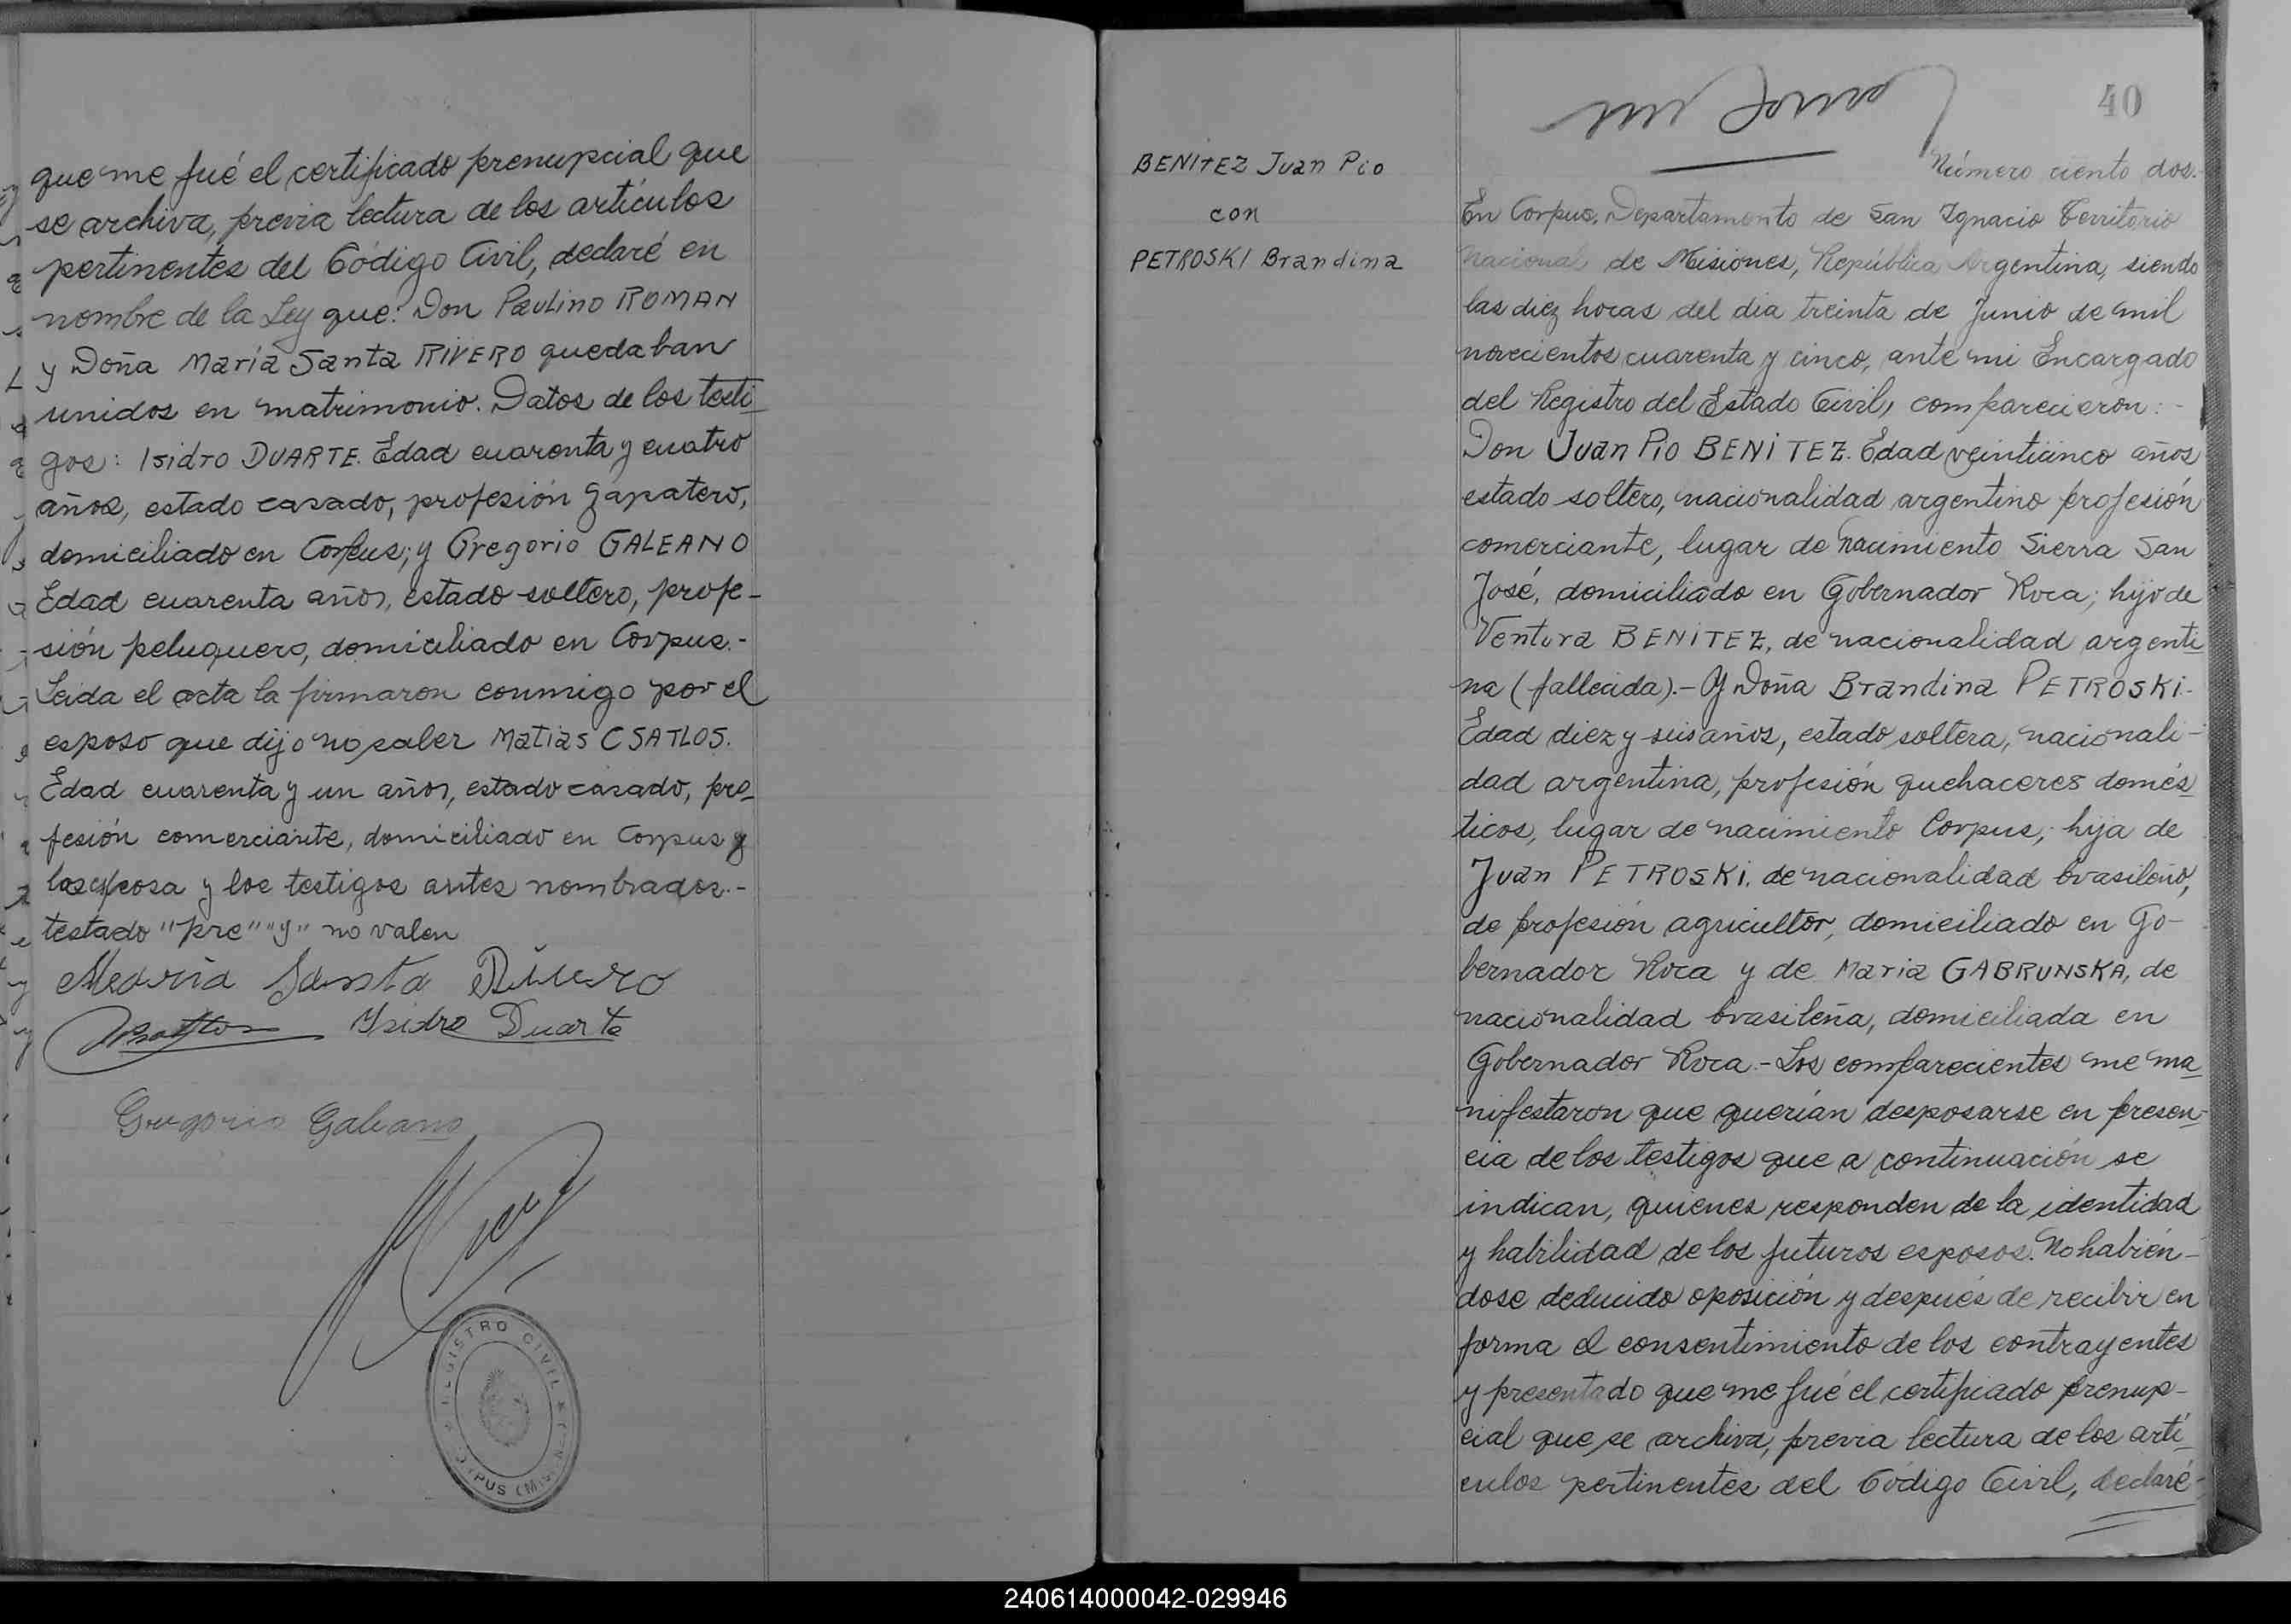 que me fué el certificado prenupcial que
se archiva, previa lectura de los artículos
pertinentes del Código Civil, declaré en
nombre de la Ley que: Don Paulino ROMAN
y Doña María Santa RIVERO quedaban
unidos en matrimonio. Datos de los testi_
gos: Isidro DUARTE. Edad cuarenta y cuatro
años, estado casado, profesión zapatero,
domiciliado en Corpus; y Gregorio GALEANO
Edad cuarenta años, estado soltero, profe-
sión peluquero, domiciliado en Corpus.-
Leida el acta la firmaron conmigo por el
esposo que dijo no saber Matias CSATLOS.
Edad cuarenta y un años, estado casado, pro_
fesión comerciante, domiciliado en Corpus y
la esposa y los testigos antes nombrados.-
testado "pre" "y" no valen
María Santa Rivero
Isidro Duarte
Gregorio Galeano
REGISTRO CIVIL
40
BENITEZ Juan Pio
con
PETROSKI Brandina
Número ciento dos.-
En Corpus, Departamento de San Ignacio Territorio
Nacional de Misiones, República Argentina, siendo
las diez horas del dia treinta de Junio de mil
novecientos cuarenta y cinco, ante mi Encargado
del Registro del Estado Civil, comparecieron:-
Don Juan Pio BENITEZ. Edad veinticinco años
estado soltero, nacionalidad argentino profesión
comerciante, lugar de nacimiento Sierra San
José, domiciliado en Gobernador Roca; hijo de
Ventura BENITEZ, de nacionalidad argenti_
na (fallecida).- Y Doña Brandina PETROSKI.
Edad diez y seis años, estado soltera, nacionali-
dad argentina, profesión quehaceres domés_
ticos, lugar de nacimiento Corpus; hija de
Juan PETROSKI. de nacionalidad brasileño,
de profesión agricultor, domiciliado en Go-
bernador Roca y de Maria GABRUNSKA, de
nacionalidad brasileña, domiciliada en
Gobernador Roca.- Los comparecientes me ma_
nifestaron que querían desposarse en presen-
cia de los testigos que a continuación se
indican, quienes responden de la identidad
y habilidad de los futuros esposos. No habién-
dose deducido oposición y después de recibir en
forma el consentimiento de los contrayentes
y presentado que me fué el certificado prenup-
cial que se archiva, previa lectura de los artí_
culos pertinentes del Código Civil, declaré-
240614000042-029946